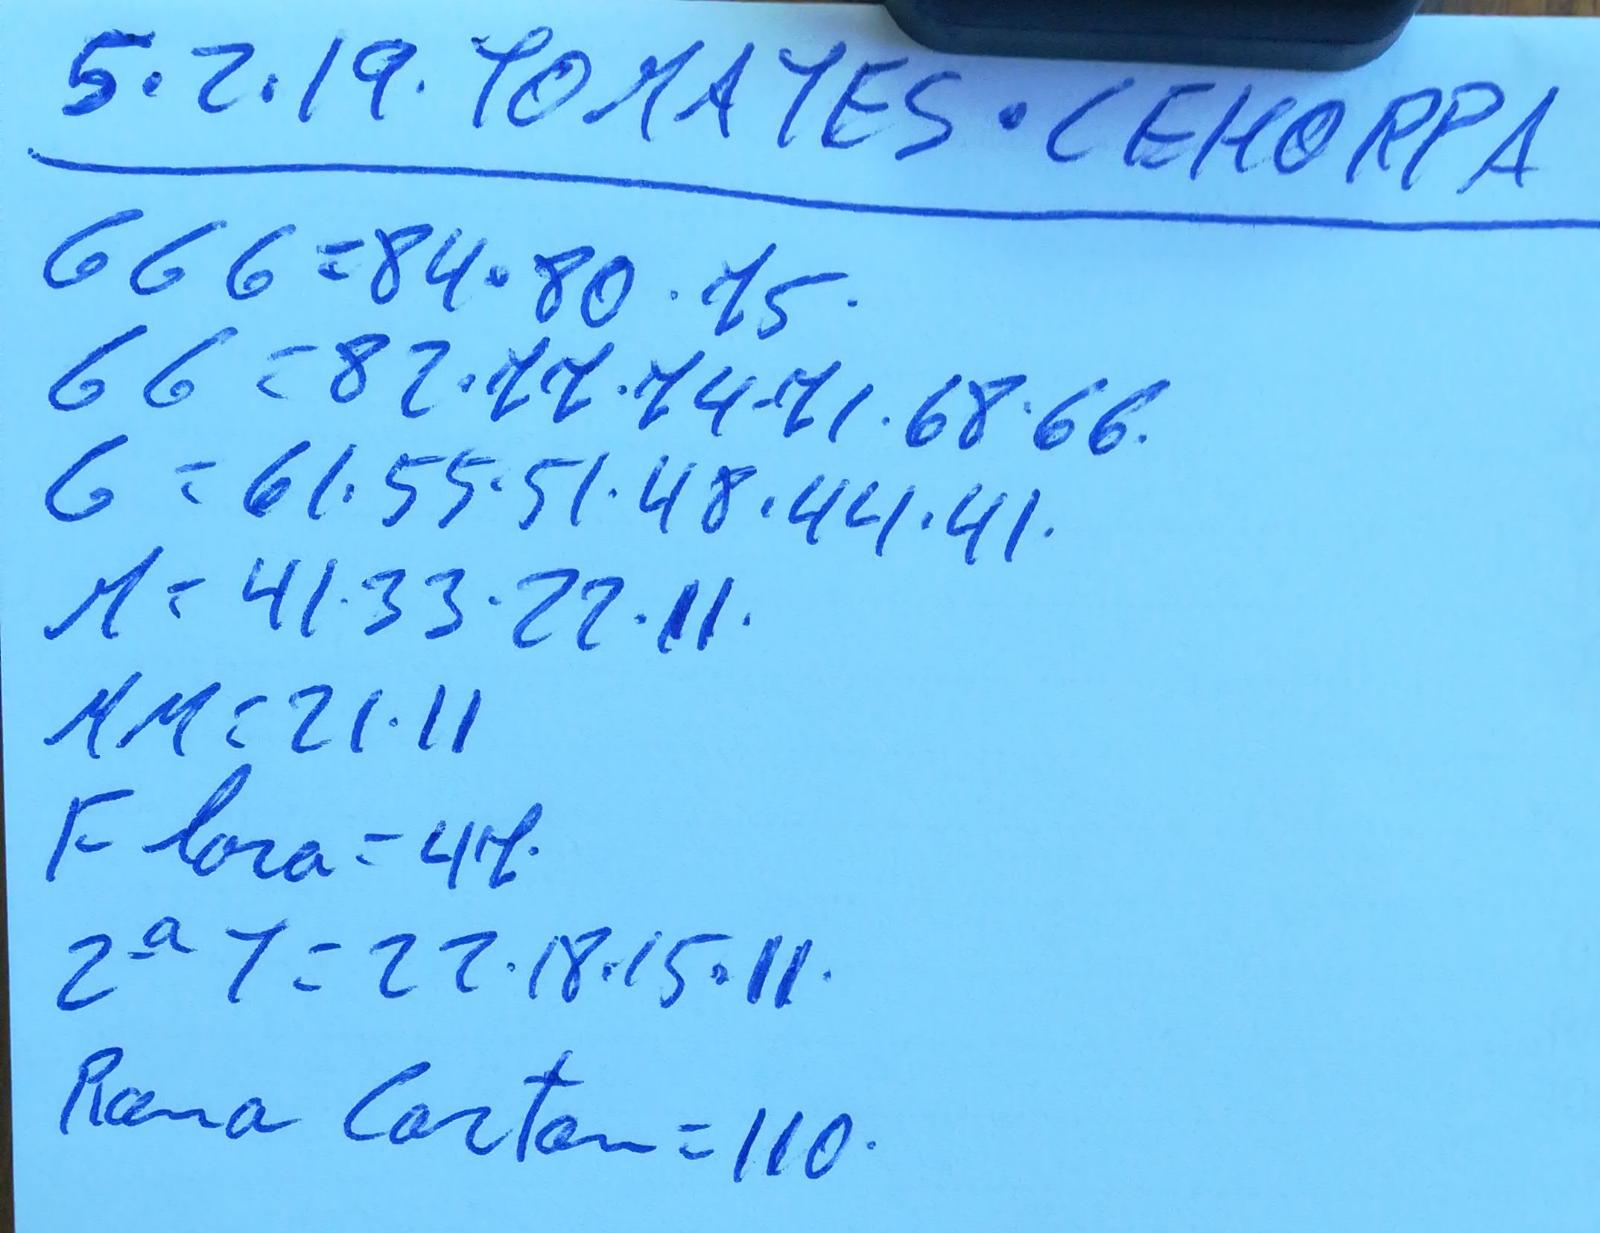 5.2.19. TOMATES · CEHORPA
GGG = 84 · 80 · 75.
GG = 82 · 77 · 74 · 71 · 68 · 66.
G = 61 · 55 · 51 · 48 · 44 · 41.
M = 41 · 33 · 22 · 11.
MM = 21 · 11
Flora = 47.
2ª T = 22 · 18 · 15 · 11.
Rama Carton = 110.